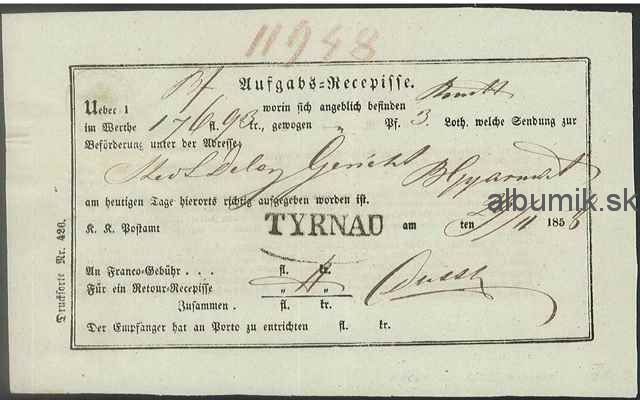 11948
Aufgabs-Recepisse.
Ueber 1 Bf worin sich angeblich befinden
im Werthe 176 fl. 98 kr., gewogen „ Pf. 3 Loth, welche Sendung zur
Beförderung unter der Adresse
Gericht BGyarmat
am heutigen Tage hierorts richtig aufgegeben worden ist.
albumik.sk
K. K. Postamt TYRNAU am 5/11 ten 1856
An Franco-Gebühr . . . fl. kr.
Für ein Retour-Recepisse „ „
Zusammen . fl. kr.
Der Empfänger hat an Porto zu entrichten fl. kr.
Drucksorte Nr. 426.